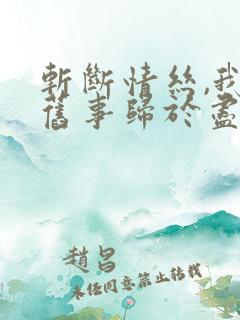 斬斷情絲,我
舊事歸於盡
趙昌
未经同意禁止转载